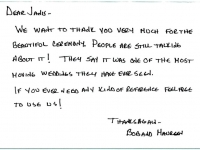 DEAR JANIS-
WE WANT TO THANK YOU VERY MUCH FOR THE
BEAUTIFUL CEREMONY. PEOPLE ARE STILL TALKING
ABOUT IT! THEY SAY IT WAS ONE OF THE MOST
MOVING WEDDINGS THEY HAVE EVER SEEN.
IF YOU EVER NEED ANY KIND OF REFERENCE FEEL FREE
TO USE US!
THANKS AGAIN-
BOB AND MAUREEN